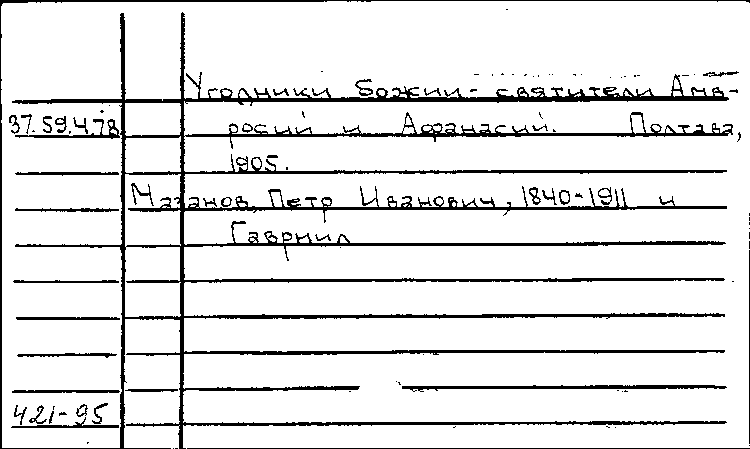 Угодники Божии - святители Амв-
37.59.4.78 росий и Афанасий. Полтава,
1905.
Мазанов, Петр Иванович, 1840-1911 и
Гавриил
421-95